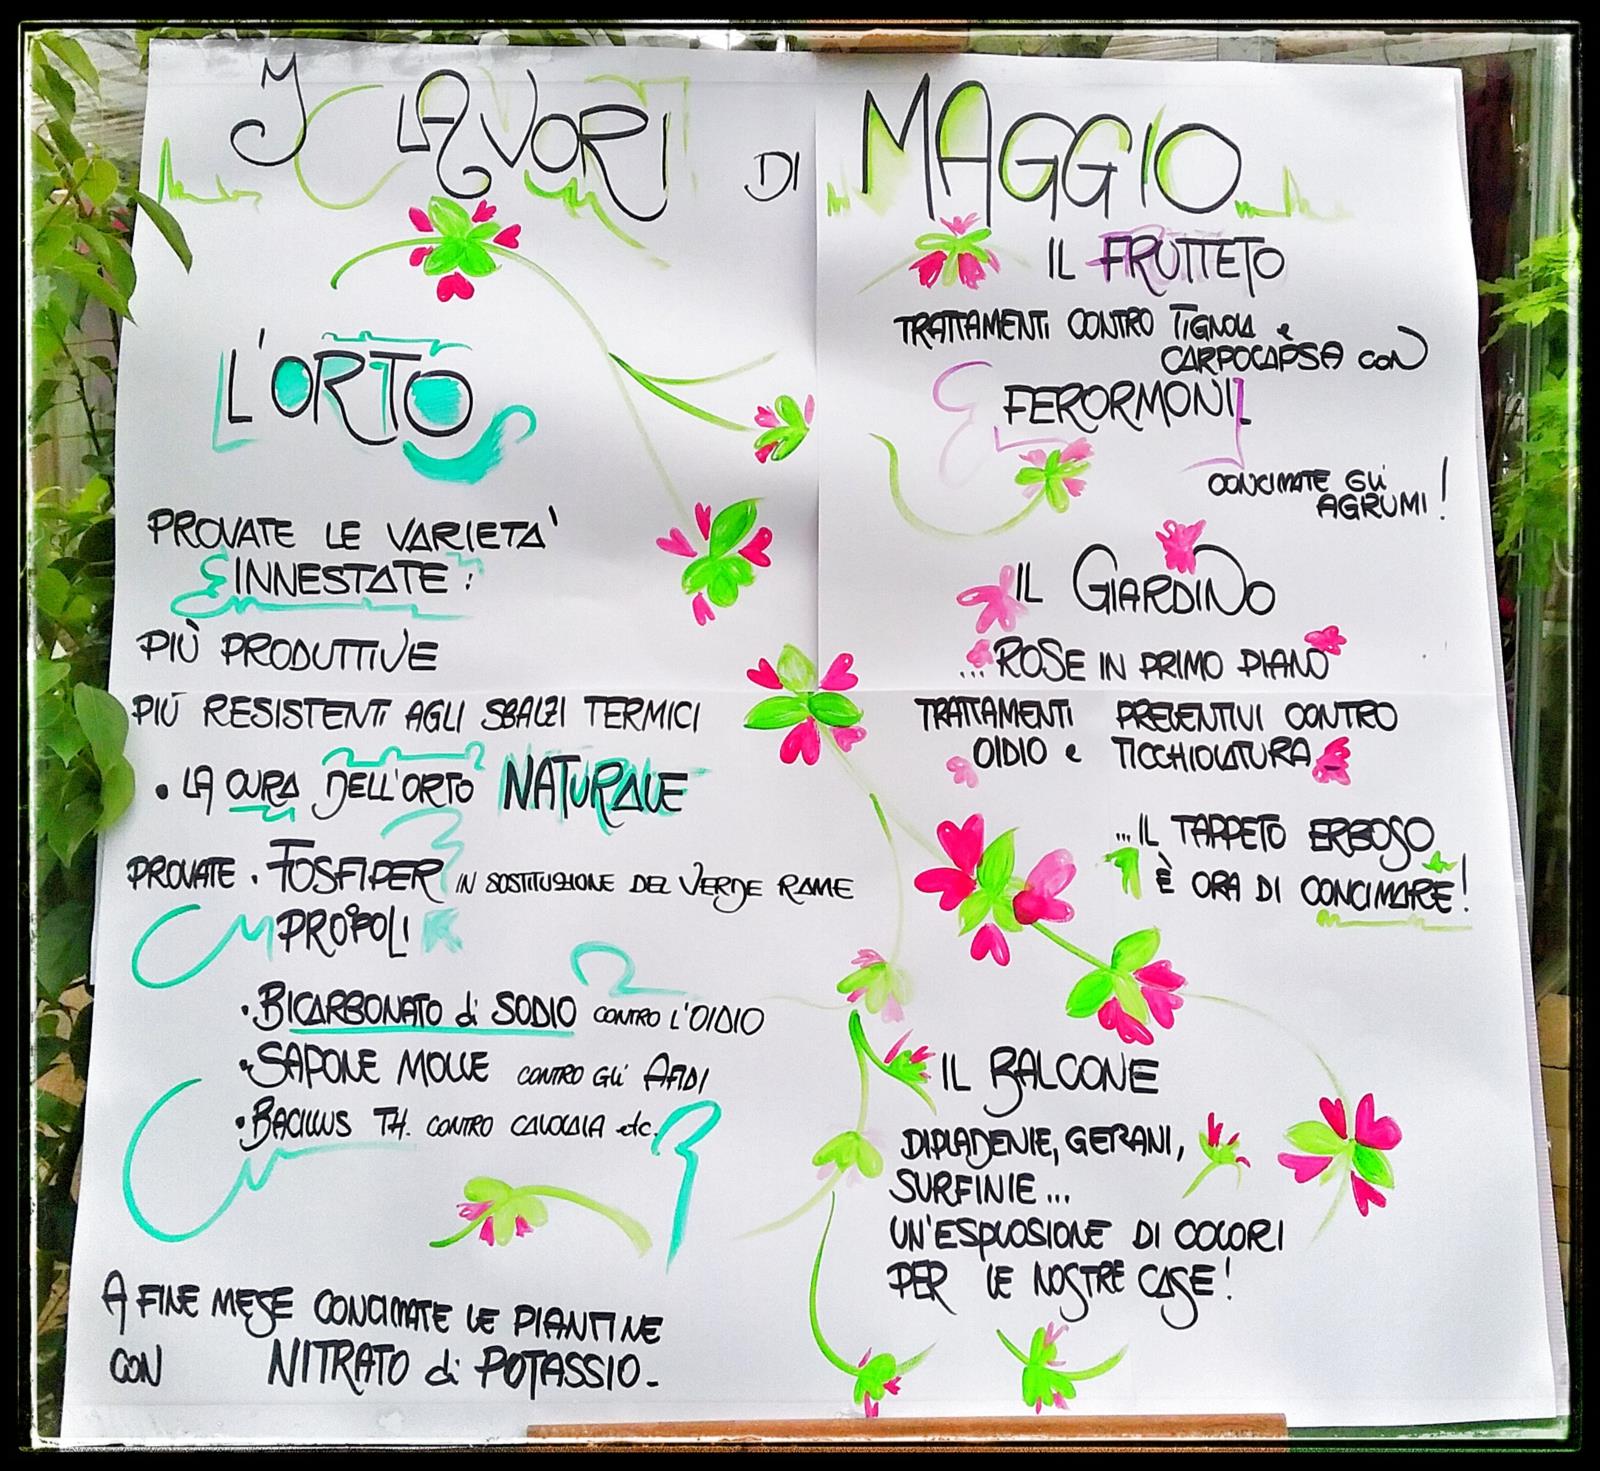 I LAVORI DI MAGGIO
L'ORTO
PROVATE LE VARIETA'
INNESTATE:
PIÙ PRODUTTIVE
PIÙ RESISTENTI AGLI SBALZI TERMICI
• LA CURA DELL'ORTO NATURALE
PROVATE • FOSFIPER IN SOSTITUZIONE DEL VERDE RAME
PROPOLI
• BICARBONATO di SODIO CONTRO L'OIDIO
• SAPONE MOLLE CONTRO GLI AFIDI
• BACILLUS TH. CONTRO CAVOLAIA etc.
A FINE MESE CONCIMATE LE PIANTINE
CON NITRATO di POTASSIO-
IL FRUTTETO
TRATTAMENTI CONTRO TIGNOLA e
CARPOCAPSA CON
FERORMONI
CONCIMATE GLI
AGRUMI!
IL GIARDINO
...ROSE IN PRIMO PIANO
TRATTAMENTI PREVENTIVI CONTRO
OIDIO e TICCHIOLATURA
...IL TAPPETO ERBOSO
È ORA DI CONCIMARE!
IL BALCONE
DIPLADENIE, GERANI,
SURFINIE...
UN'ESPLOSIONE DI COLORI
PER LE NOSTRE CASE!